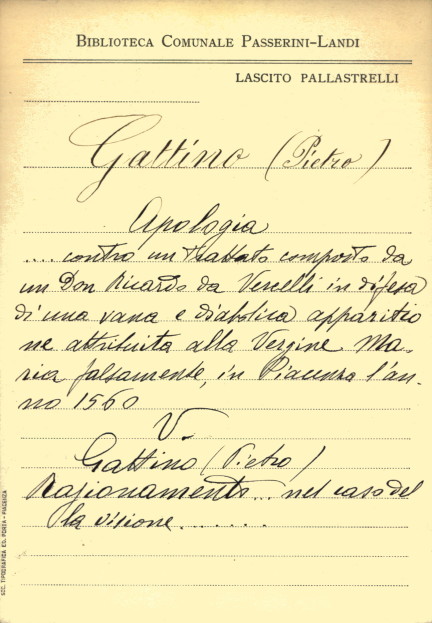 BIBLIOTECA COMUNALE PASSERINI-LANDI
LASCITO PALLASTRELLI
Gattino (Pietro)
Apologia
.... contro un trattato composto da
un Don Ricardo da Vercelli in difesa
di una vana e diabolica apparitio
ne attribuita alla Vergine Ma-
ria falsamente, in Piacenza l'an-
no 1560
V.
Gattino (Pietro)
Ragionamento... nel caso del
la visione.......
SOC. TIPOGRAFICA ED. PORTA - PIACENZA